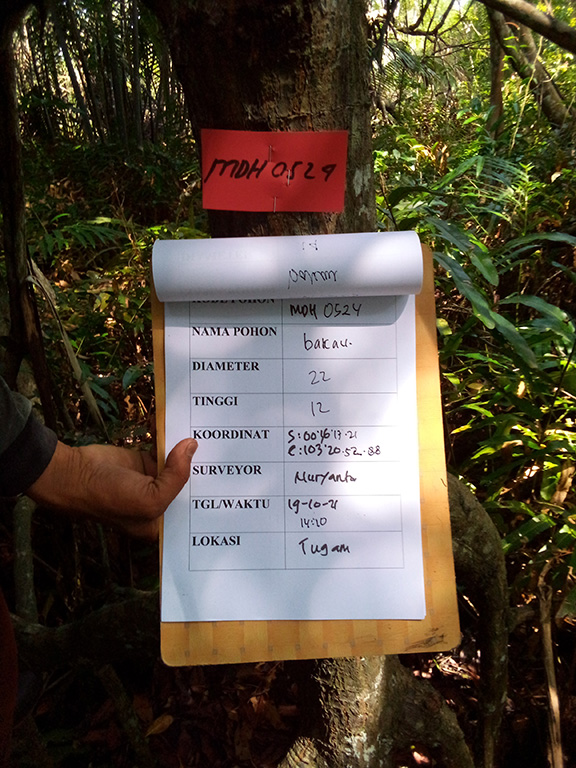 MDH 0524
KODE POHON MDH 0524
NAMA POHON bakau.
DIAMETER 22
TINGGI 12
KOORDINAT S:00°46'17.21
e:103°20.52.88
SURVEYOR Nuryanto
TGL/WAKTU 19-10-21
14:20
LOKASI Tugam